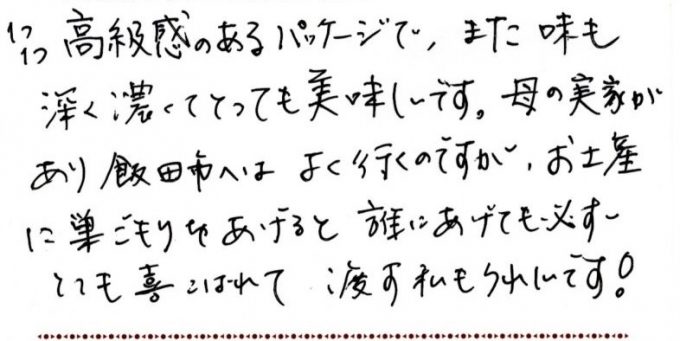 1つ1つ高級感のあるパッケージで、また味も
深く濃くてとっても美味しいです。母の実家が
あり飯田市へは よく行くのですが、お土産
に巣ごもりをあげると 誰にあげても必ず
とても喜こばれて 渡す私もうれしいです！